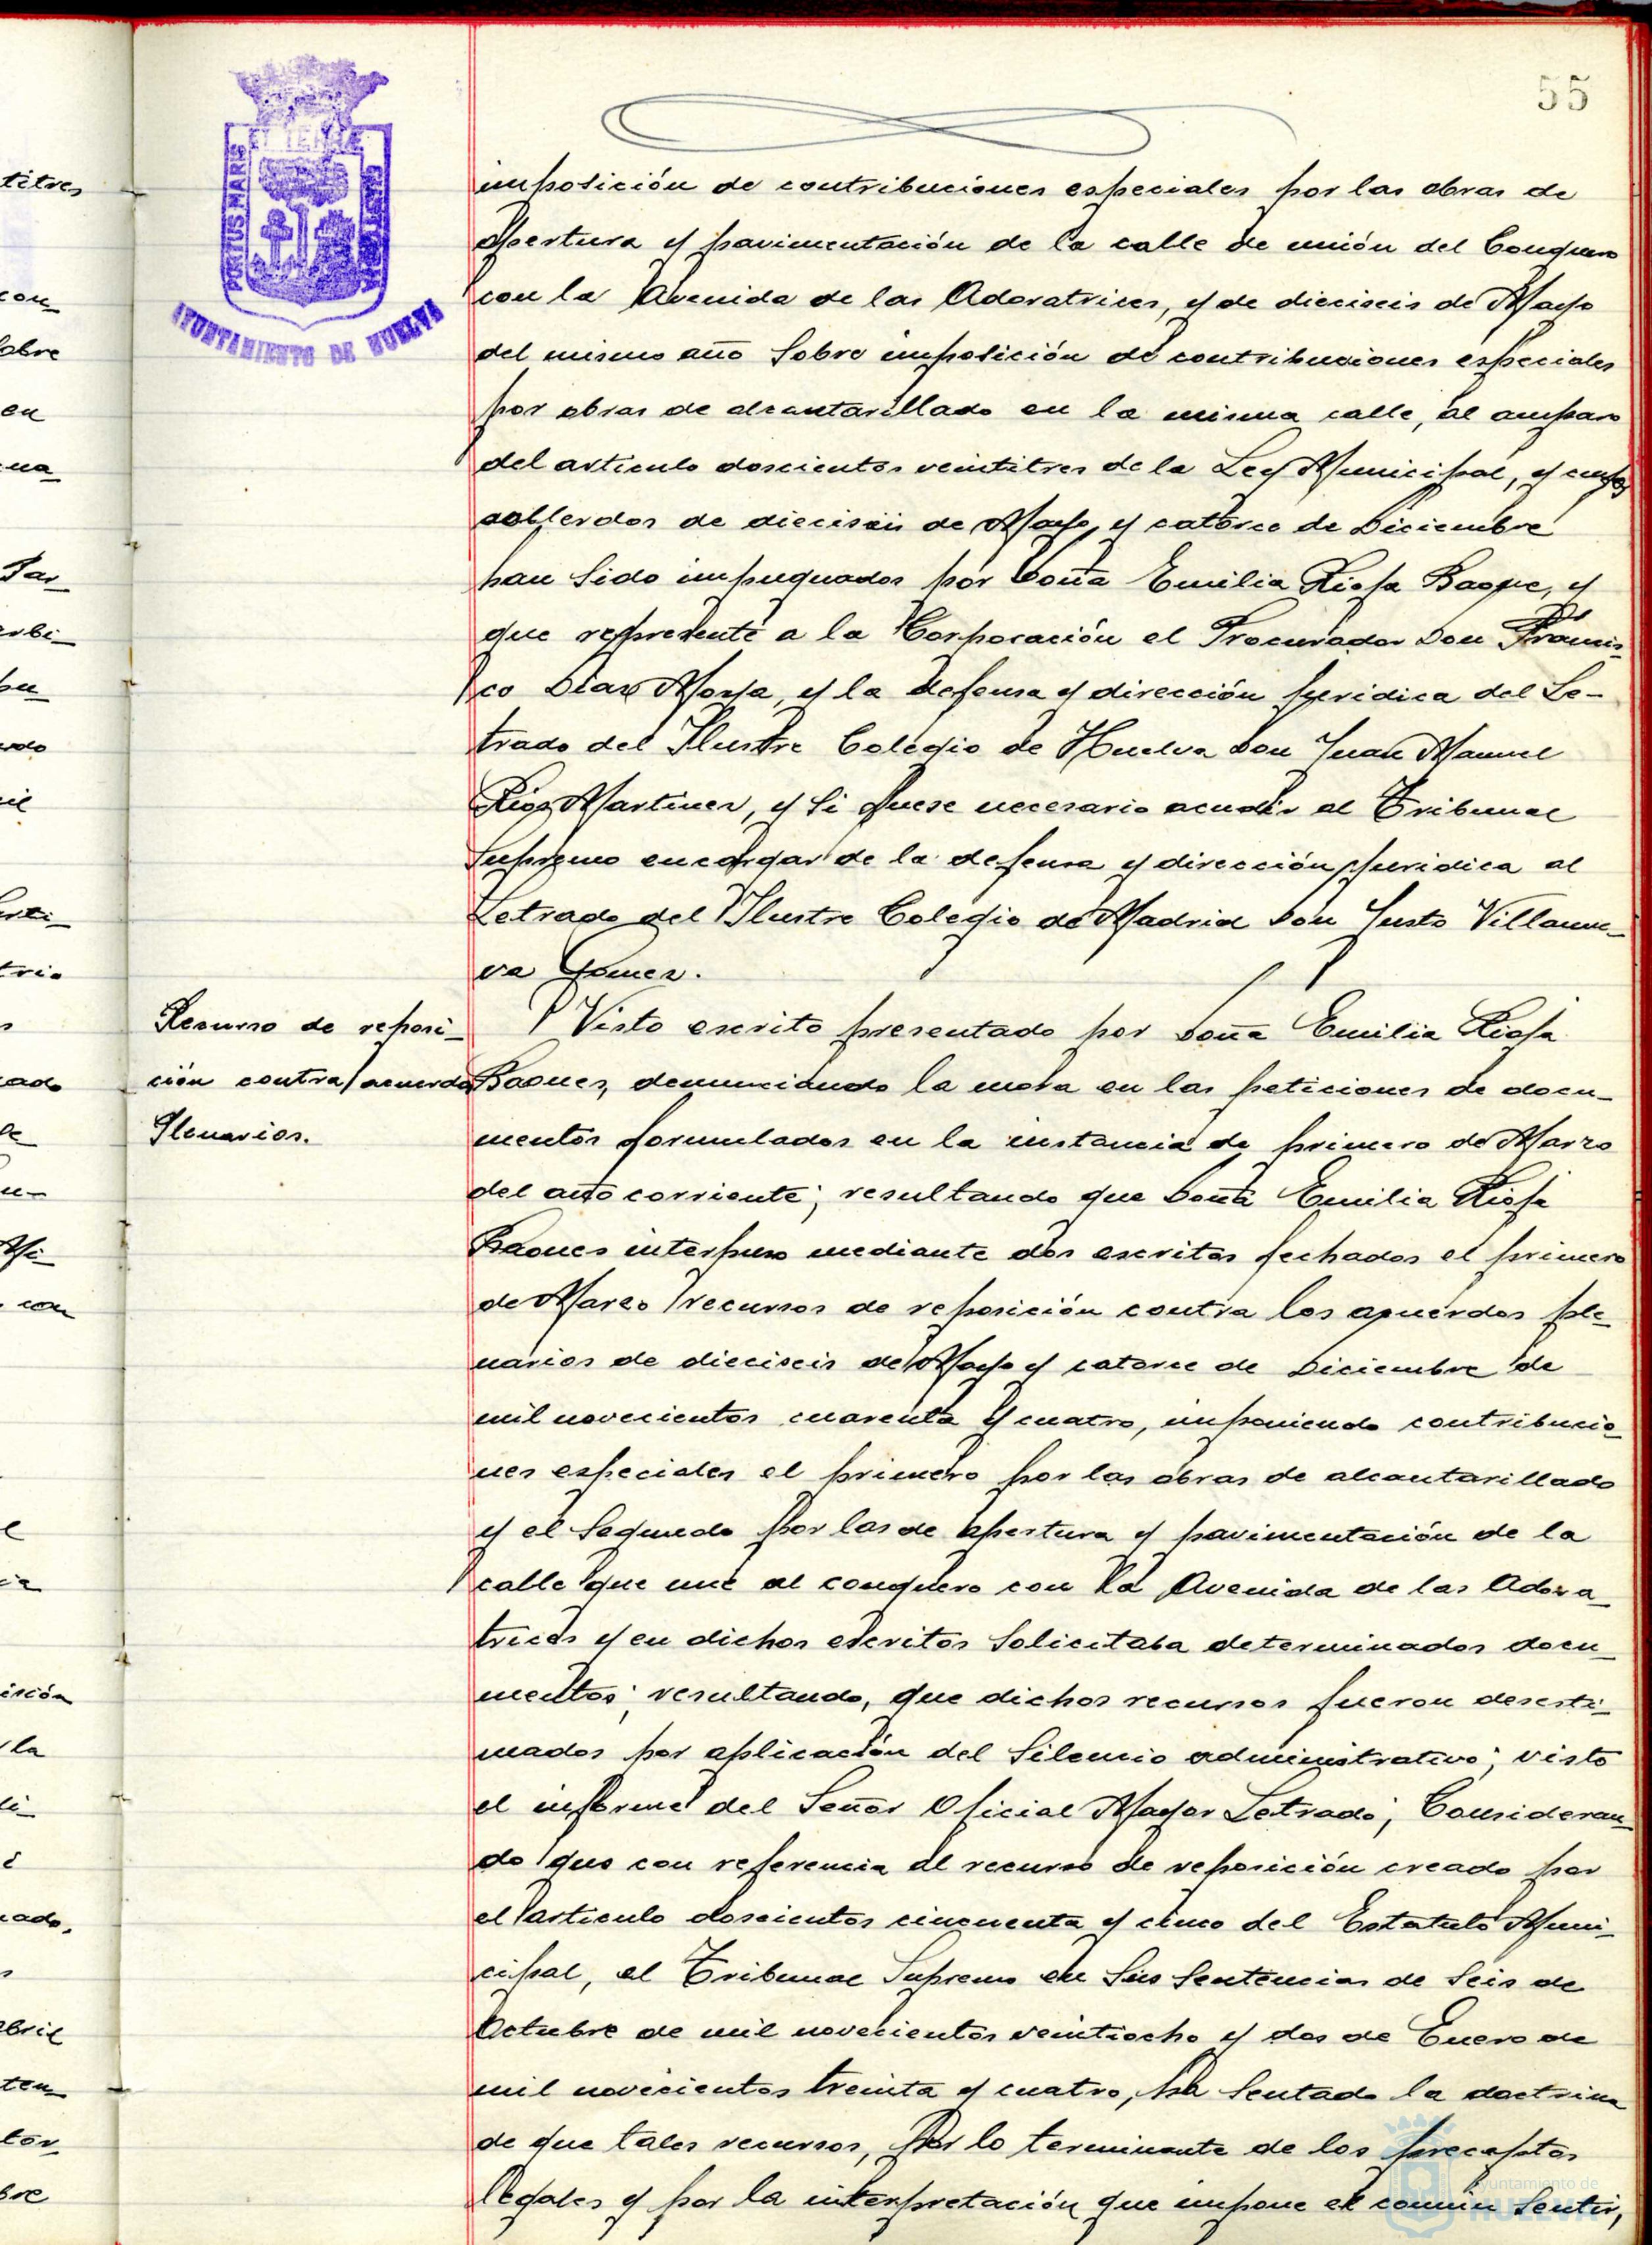 55
ET TERRÆ
PORTUS MARIS
CUSTODIA
AYUNTAMIENTO DE HUELVA
imposición de contribuciones especiales por las obras de
apertura y pavimentación de la calle de unión del Conquero
con la Avenida de las Adoratrices, y de dieciseis de Mayo
del mismo año sobre imposición de contribuciones especiales
por obras de alcantarillado en la misma calle, al amparo
del articulo doscientos veintitres de la Ley Municipal, y cuyos
acuerdos de dieciseis de Mayo, y catorce de Diciembre
han sido impugnados por Doña Emilia Rioja, y
que represente a la Corporación el Procurador Don Francis-
co Diaz Moya, y la defensa y dirección juridica del Le-
trado del Ilustre Colegio de Huelva Don Juan Manuel
Martinez, y si fuese necesario acudir al Tribunal
Supremo encargar de la defensa y dirección juridica al
Letrado del Ilustre Colegio de Madrid Don Justo Villanue-
va Gomez.
Recurso de reposi-
ción contra acuerdos
Plenarios.
Visto escrito presentado por Doña Emilia Rioja
Baones, denunciando la mora en las peticiones de docu-
mentos formulados en la instancia de primero de Marzo
del año corriente; resultando que Doña Emilia Rioja
Baones interpuso mediante dos escritos fechados el primero
de Marzo recursos de reposición contra los acuerdos ple-
narios de dieciseis de Mayo y catorce de Diciembre de
mil novecientos cuarenta y cuatro, imponiendo contribucio-
nes especiales el primero por las obras de alcantarillado
y el segundo por las de apertura y pavimentación de la
calle que une al conquero con la Avenida de las Adora-
trices y en dichos escritos solicitaba determinados docu-
mentos; resultando, que dichos recursos fueron desesti-
mados por aplicación del silencio administrativo; visto
el informe del Señor Oficial Mayor Letrado; Consideran-
do que con referencia al recurso de reposición creado por
el articulo doscientos cincuenta y cinco del Estatuto Muni-
cipal, el Tribunal Supremo en sus sentencias de seis de
Octubre de mil novecientos veintiocho y dos de Enero de
mil novecientos treinta y cuatro, ha sentado la doctrina
de que tales recursos, por lo terminante de los preceptos
legales y por la interpretación que impone el común sentir,
Ayuntamiento de
HUELVA
titres
con
sobre
en
abril